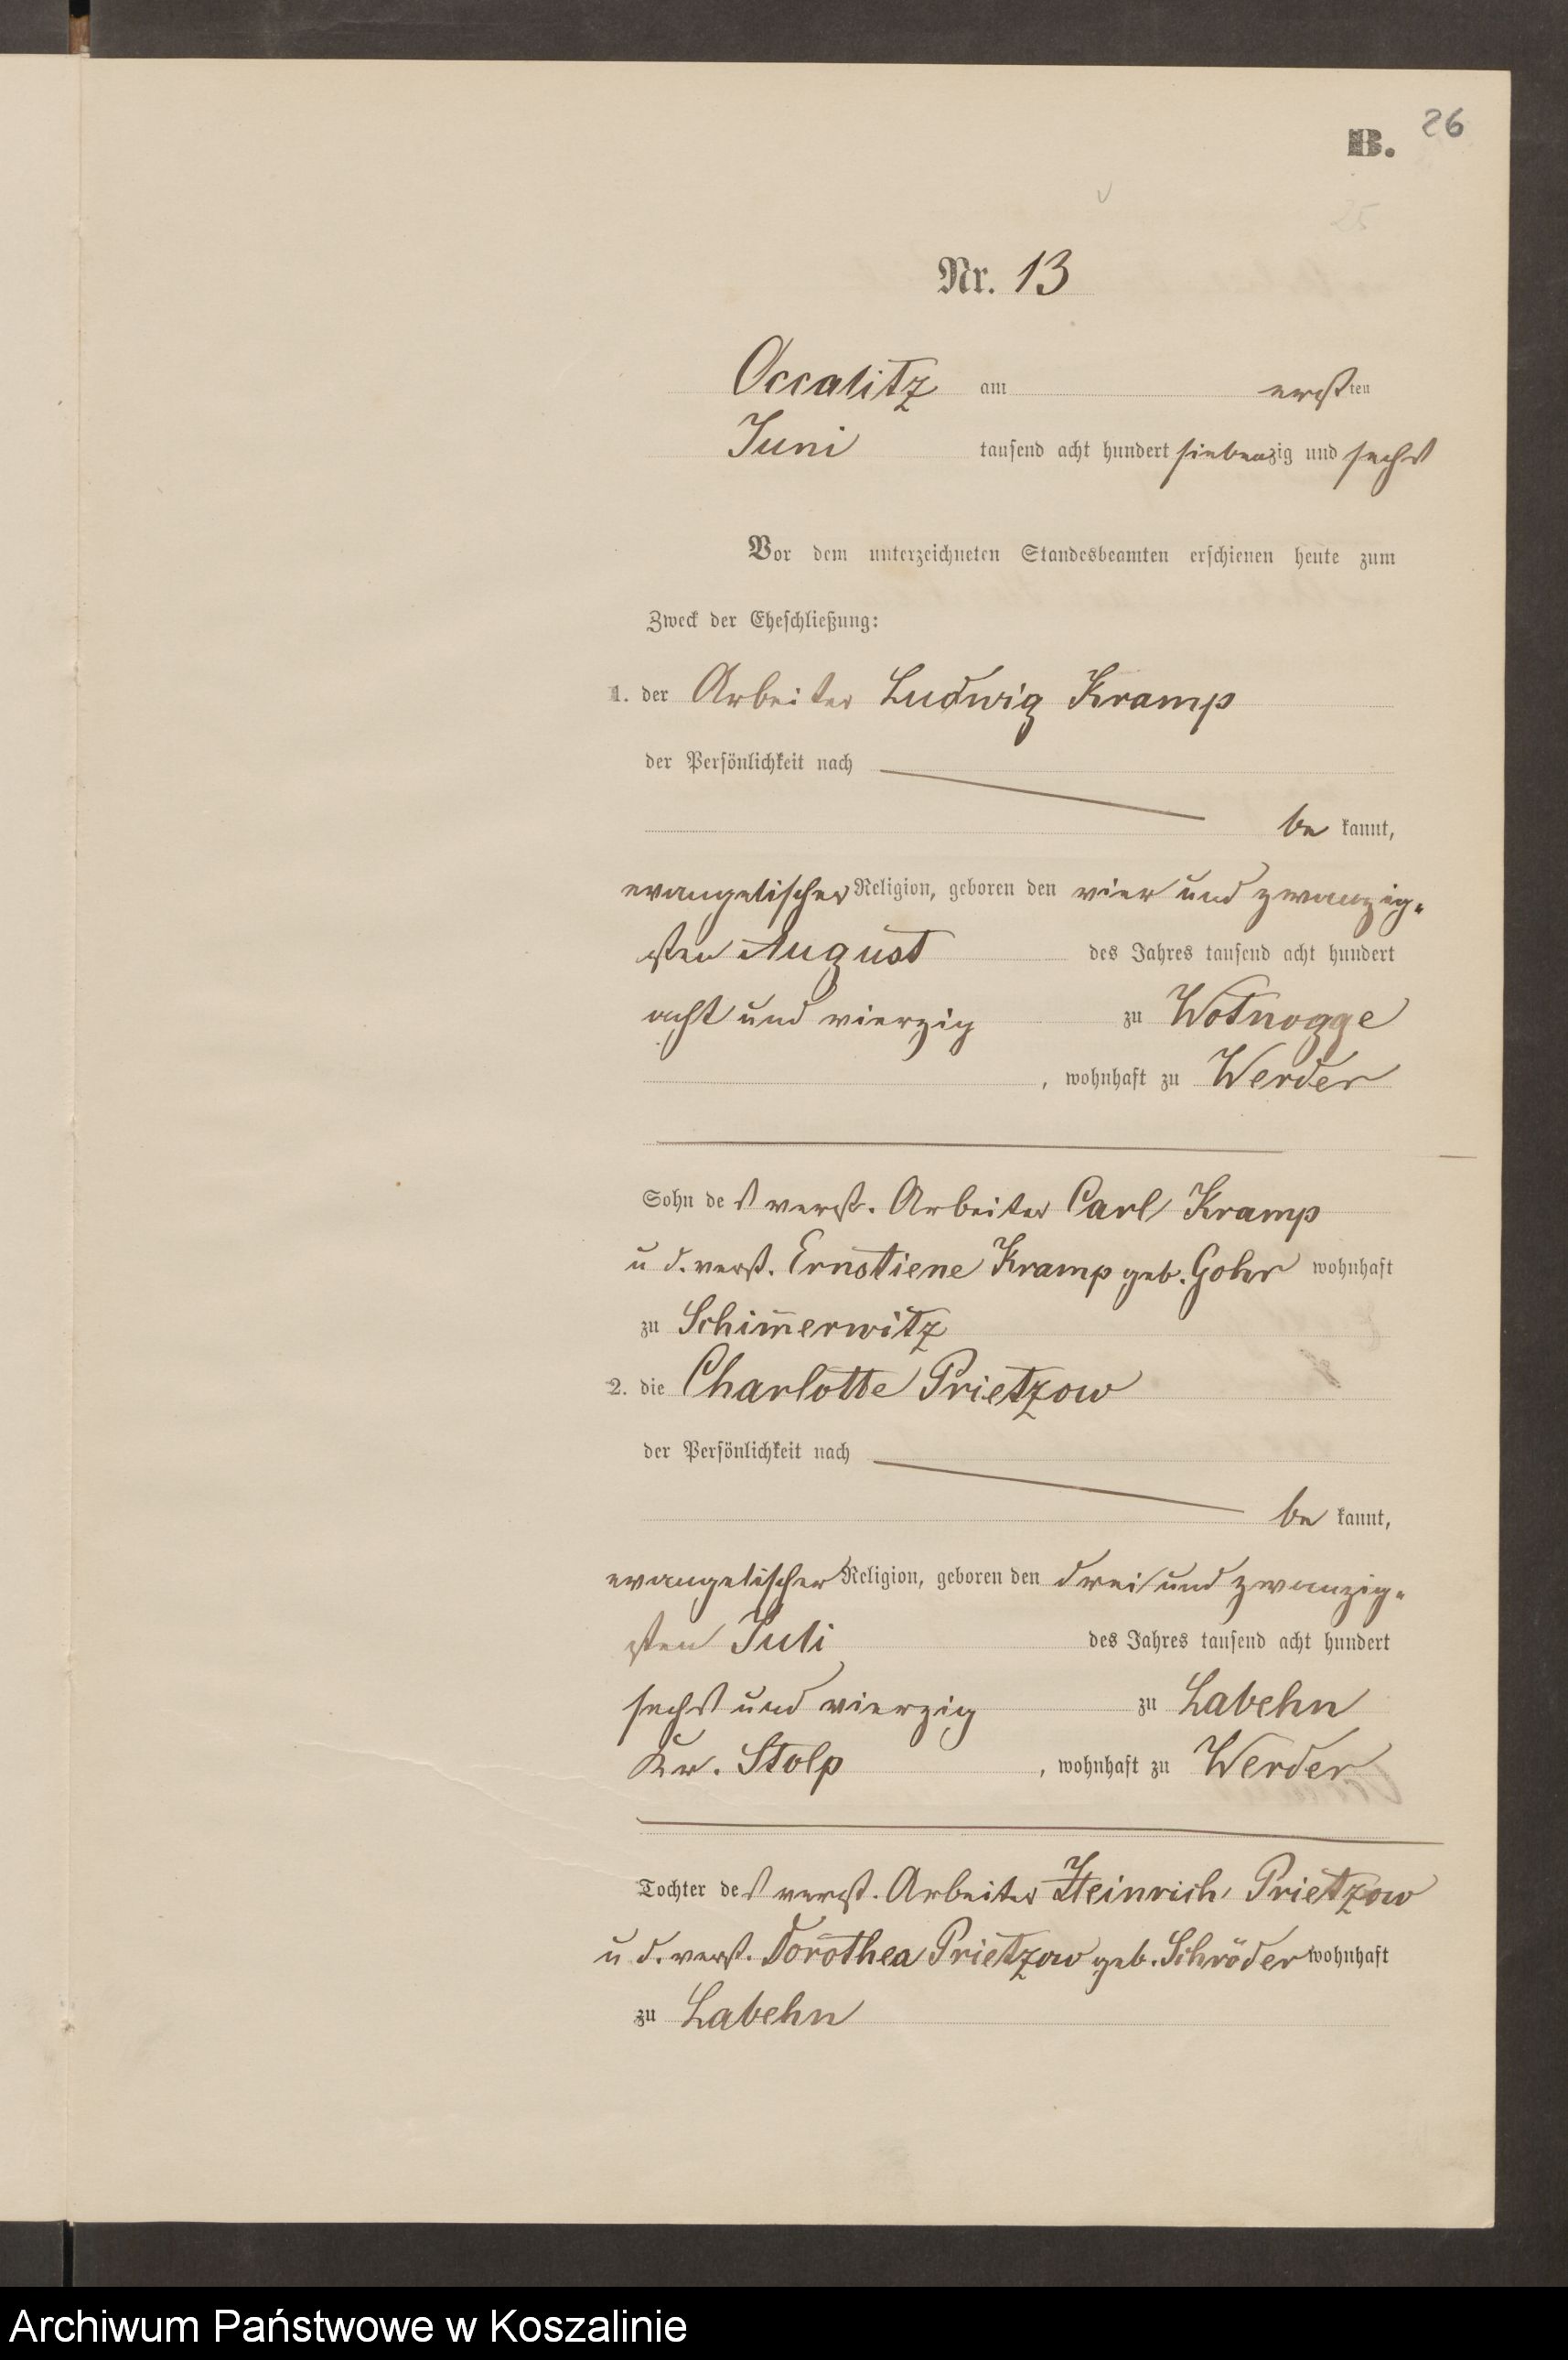 B. 26
25
Nr. 13
Occalitz am ersten
Juni tausend acht hundert siebenzig und sechs
Vor dem unterzeichneten Standesbeamten erschienen heute zum
Zweck der Eheschließung:
1. der Arbeiter Ludwig Kramp
der Persönlichkeit nach
be kannt,
evangelischer Religion, geboren den vier und zwanzig-
sten August des Jahres tausend acht hundert
acht und vierzig zu Wotnogge
, wohnhaft zu Werder
Sohn des verst. Arbeiter Carl Kramp
u d. verst. Ernstiene Kramp geb. Gohr wohnhaft
zu Schim̅erwitz
2. die Charlotte Prietzow
der Persönlichkeit nach
be kannt,
evangelischer Religion, geboren den drei und zwanzig-
sten Juli des Jahres tausend acht hundert
sechs und vierzig zu Labehn
Kr. Stolp , wohnhaft zu Werder
Tochter des verst. Arbeiter Heinrich Prietzow
u d. verst. Dorothea Prietzow geb. Schröder wohnhaft
zu Labehn
Archiwum Państwowe w Koszalinie